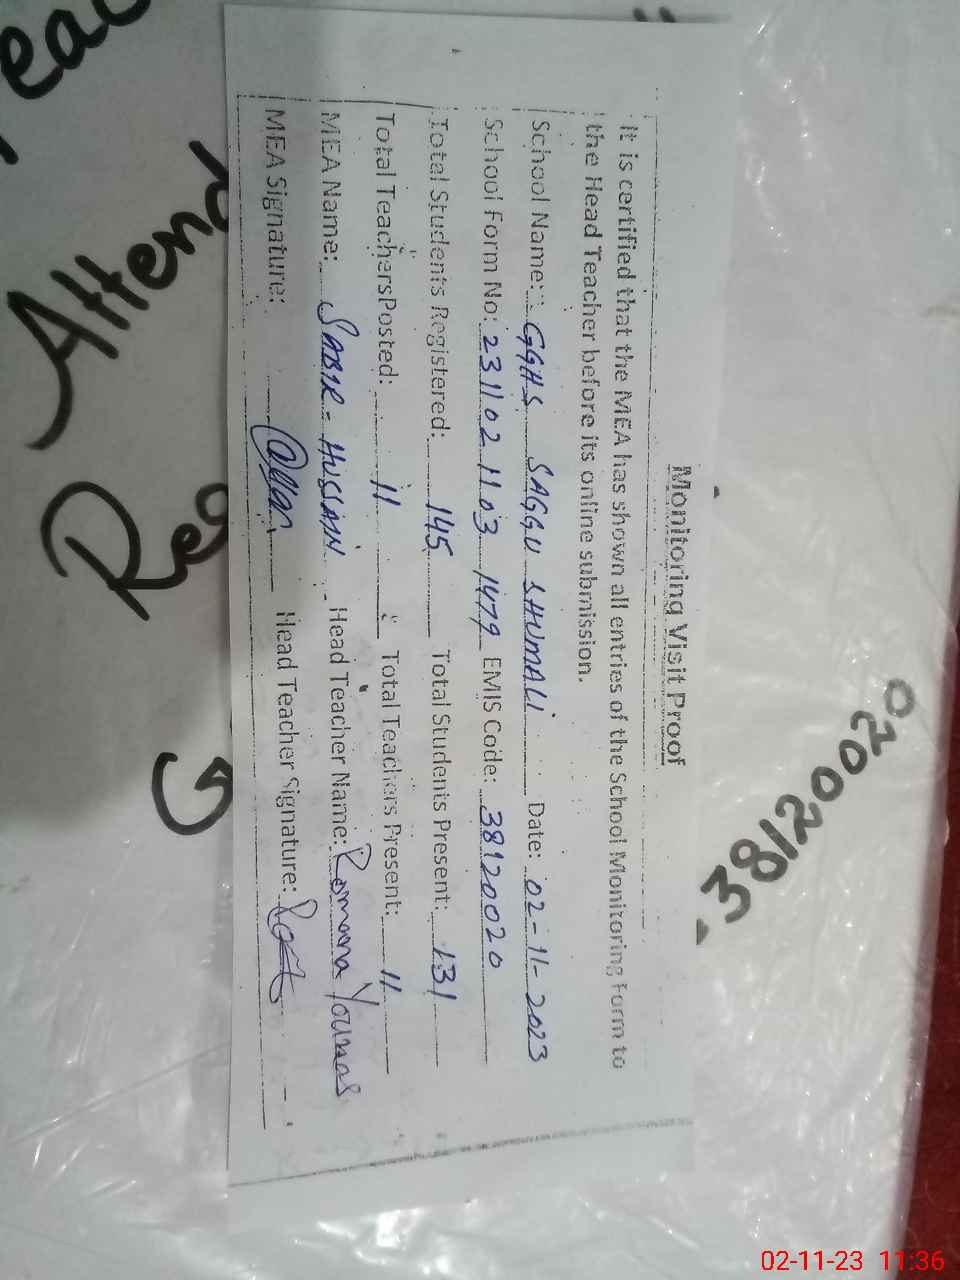 Attend
38120020
Monitoring Visit Proof
It is certified that the MEA has shown all entries of the School Monitoring Form to
the Head Teacher before its online submission.
School Name: GGHS SAGGU SHUMALI Date: 02-11-2023
School Form No: 231102 1103 1479 EMIS Code: 38120020
Total Students Registered: 145 Total Students Present: 131
Total Teachers Posted: 11 Total Teachers Present: 11
MEA Name: SABIR-HUSSAIN Head Teacher Name: Romana Younas
MEA Signature: Head Teacher Signature:
02-11-23 11:36